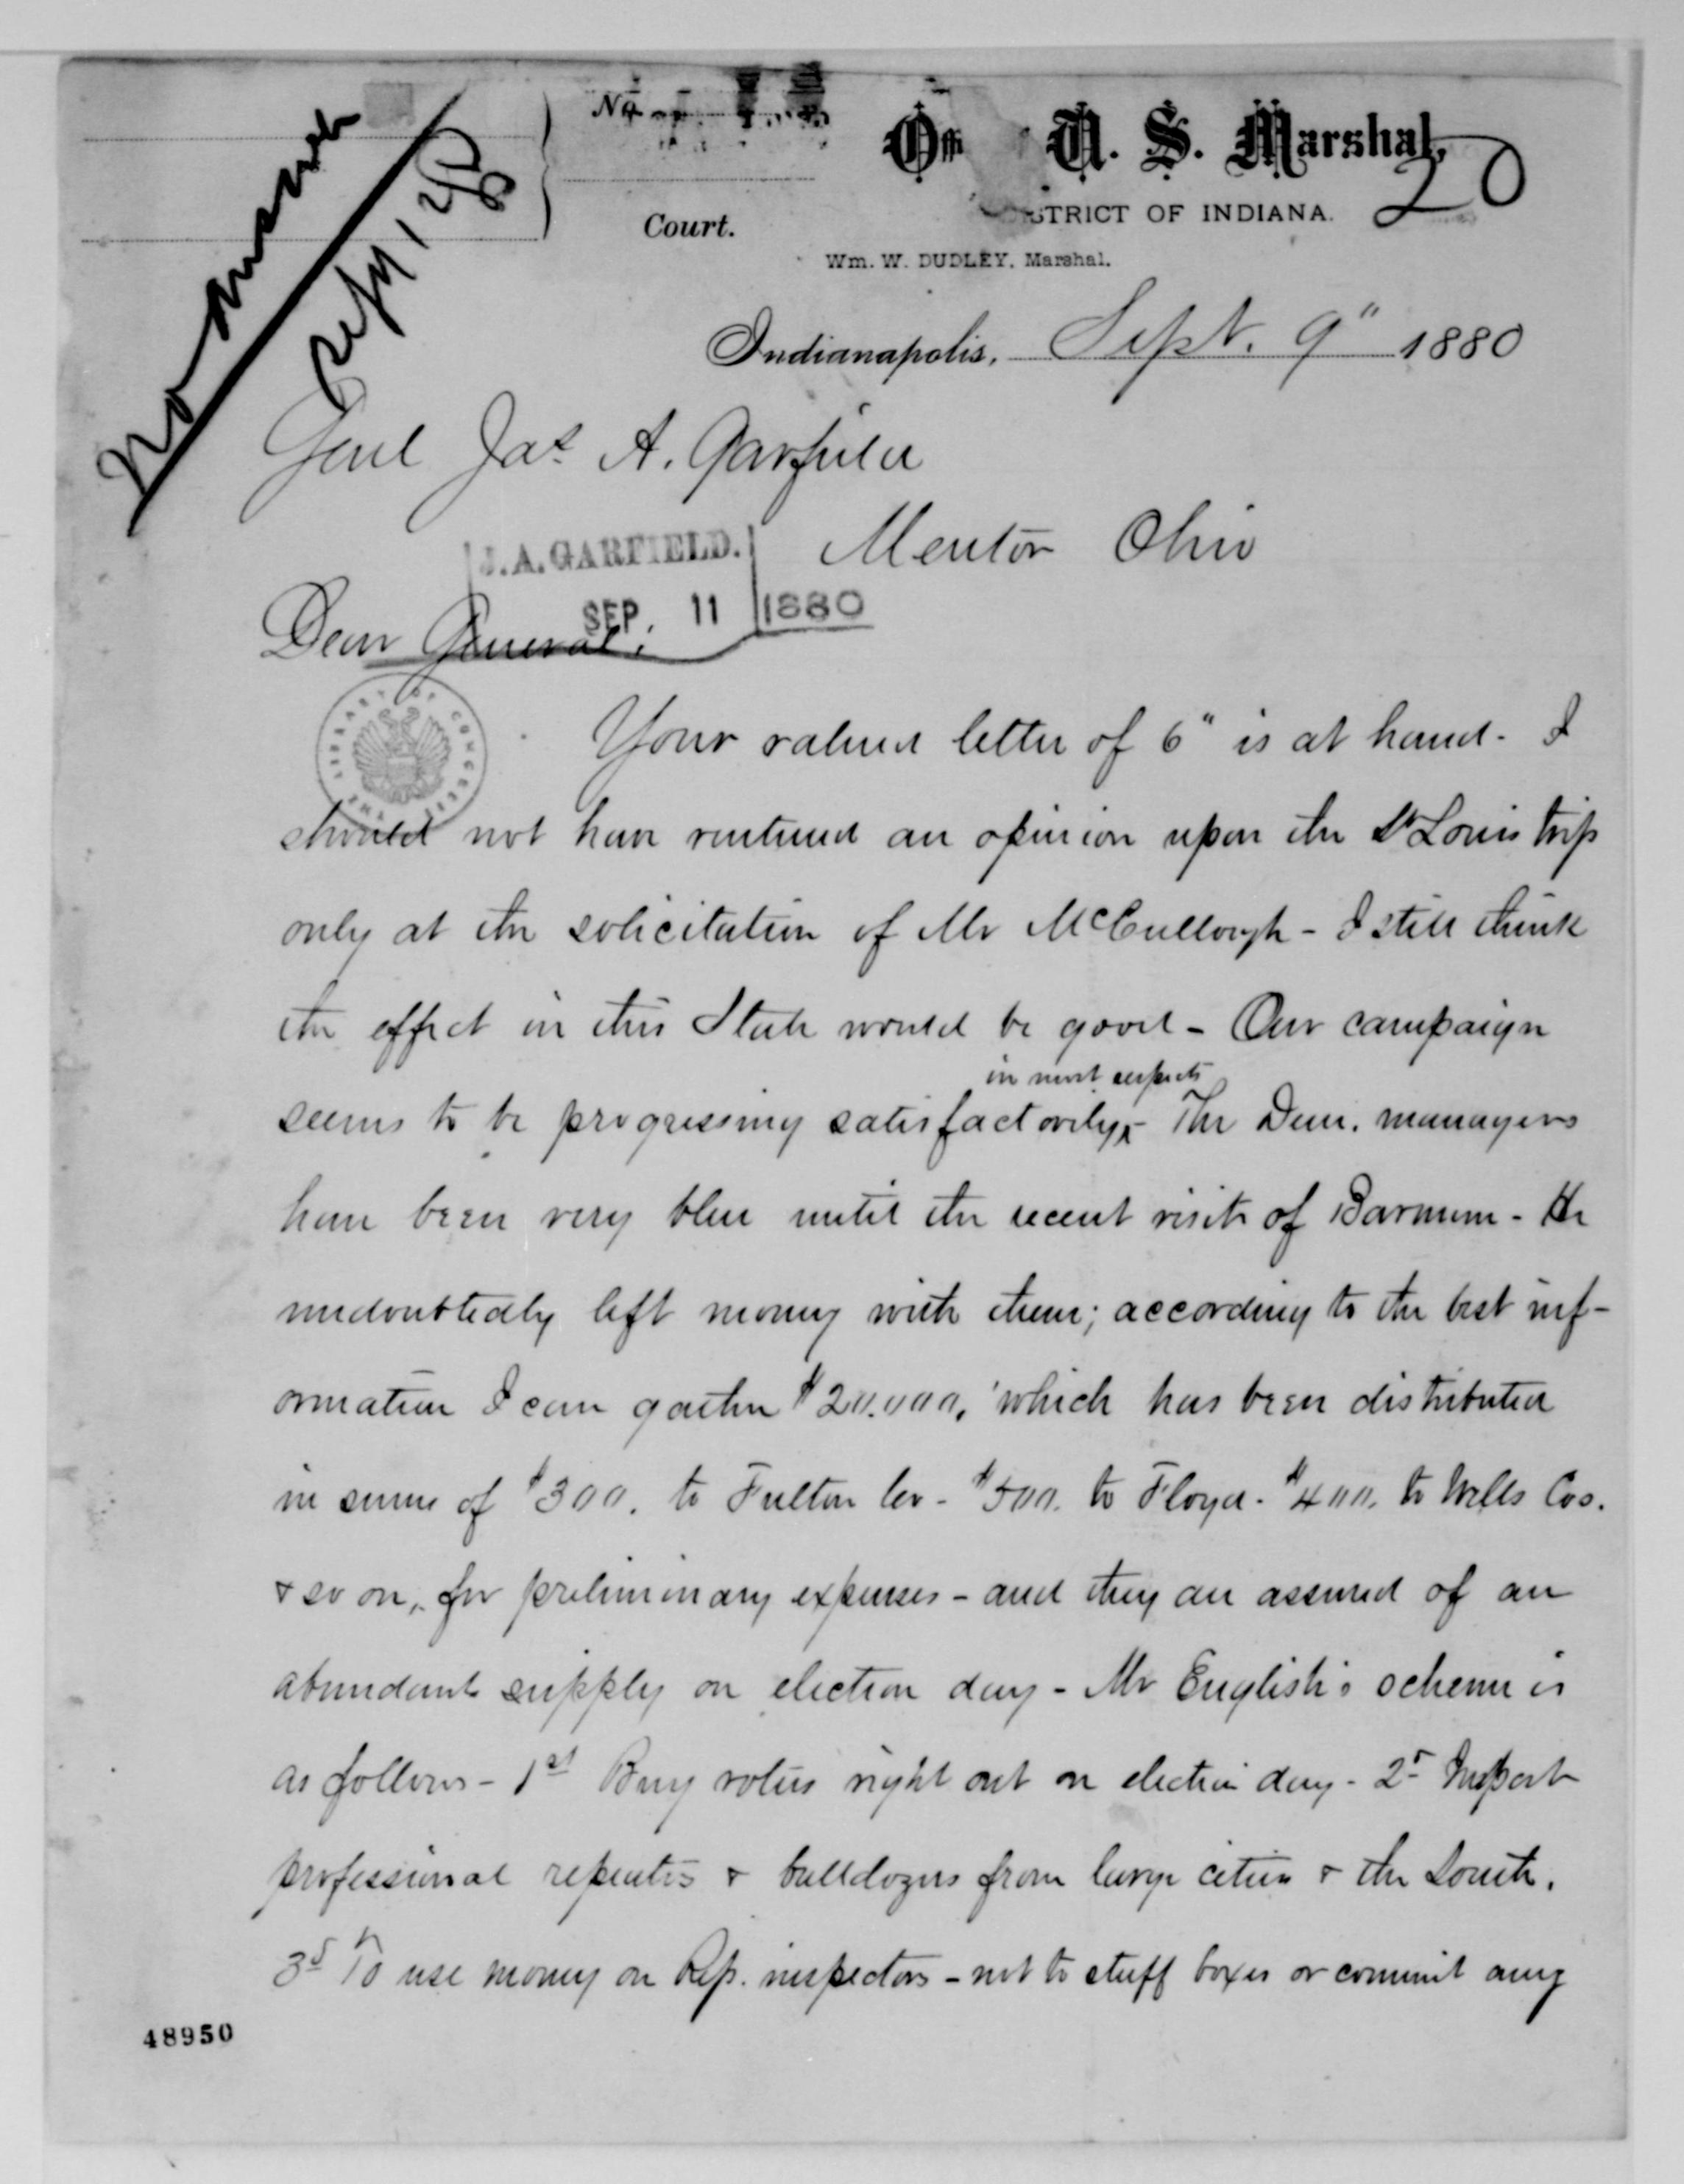 No answer
Sept 12/80
No
Court.
U. S. Marshal,
20
STRICT OF INDIANA.
Wm. W. DUDLEY, Marshal.
Indianapolis, Sept. 9" 1880
Genl Jas A. Garfield
Mentor Ohio
J. A. GARFIELD.
SEP. 11 1880
Dear General;
THE LIBRARY OF CONGRESS
Your valued letter of 6" is at hand - I
should not have ventured an opinion upon the St Louis trip
only at the solicitation of Mr McCullough - I still think
the effect in this State would be good - Our campaign
in most respects
seems to be progressing satisfactorily - The Dem. managers
have been very blue until the recent visit of Barnum - He
undoubtedly left money with them; according to the best inf-
ormation I can gather $20.000, which has been distributed
in sums of $300. to Fulton Co - $500. to Floyd - $400. to Wells Cos.
& so on, for preliminary expenses - and they are assured of an
abundant supply on election day - Mr English's scheme is
as follows - 1st Buy votes right out on election day - 2d Import
professional repeaters & bulldozers from large cities & the South.
3d To use money on Rep. inspectors - not to stuff boxes or commit any
48950